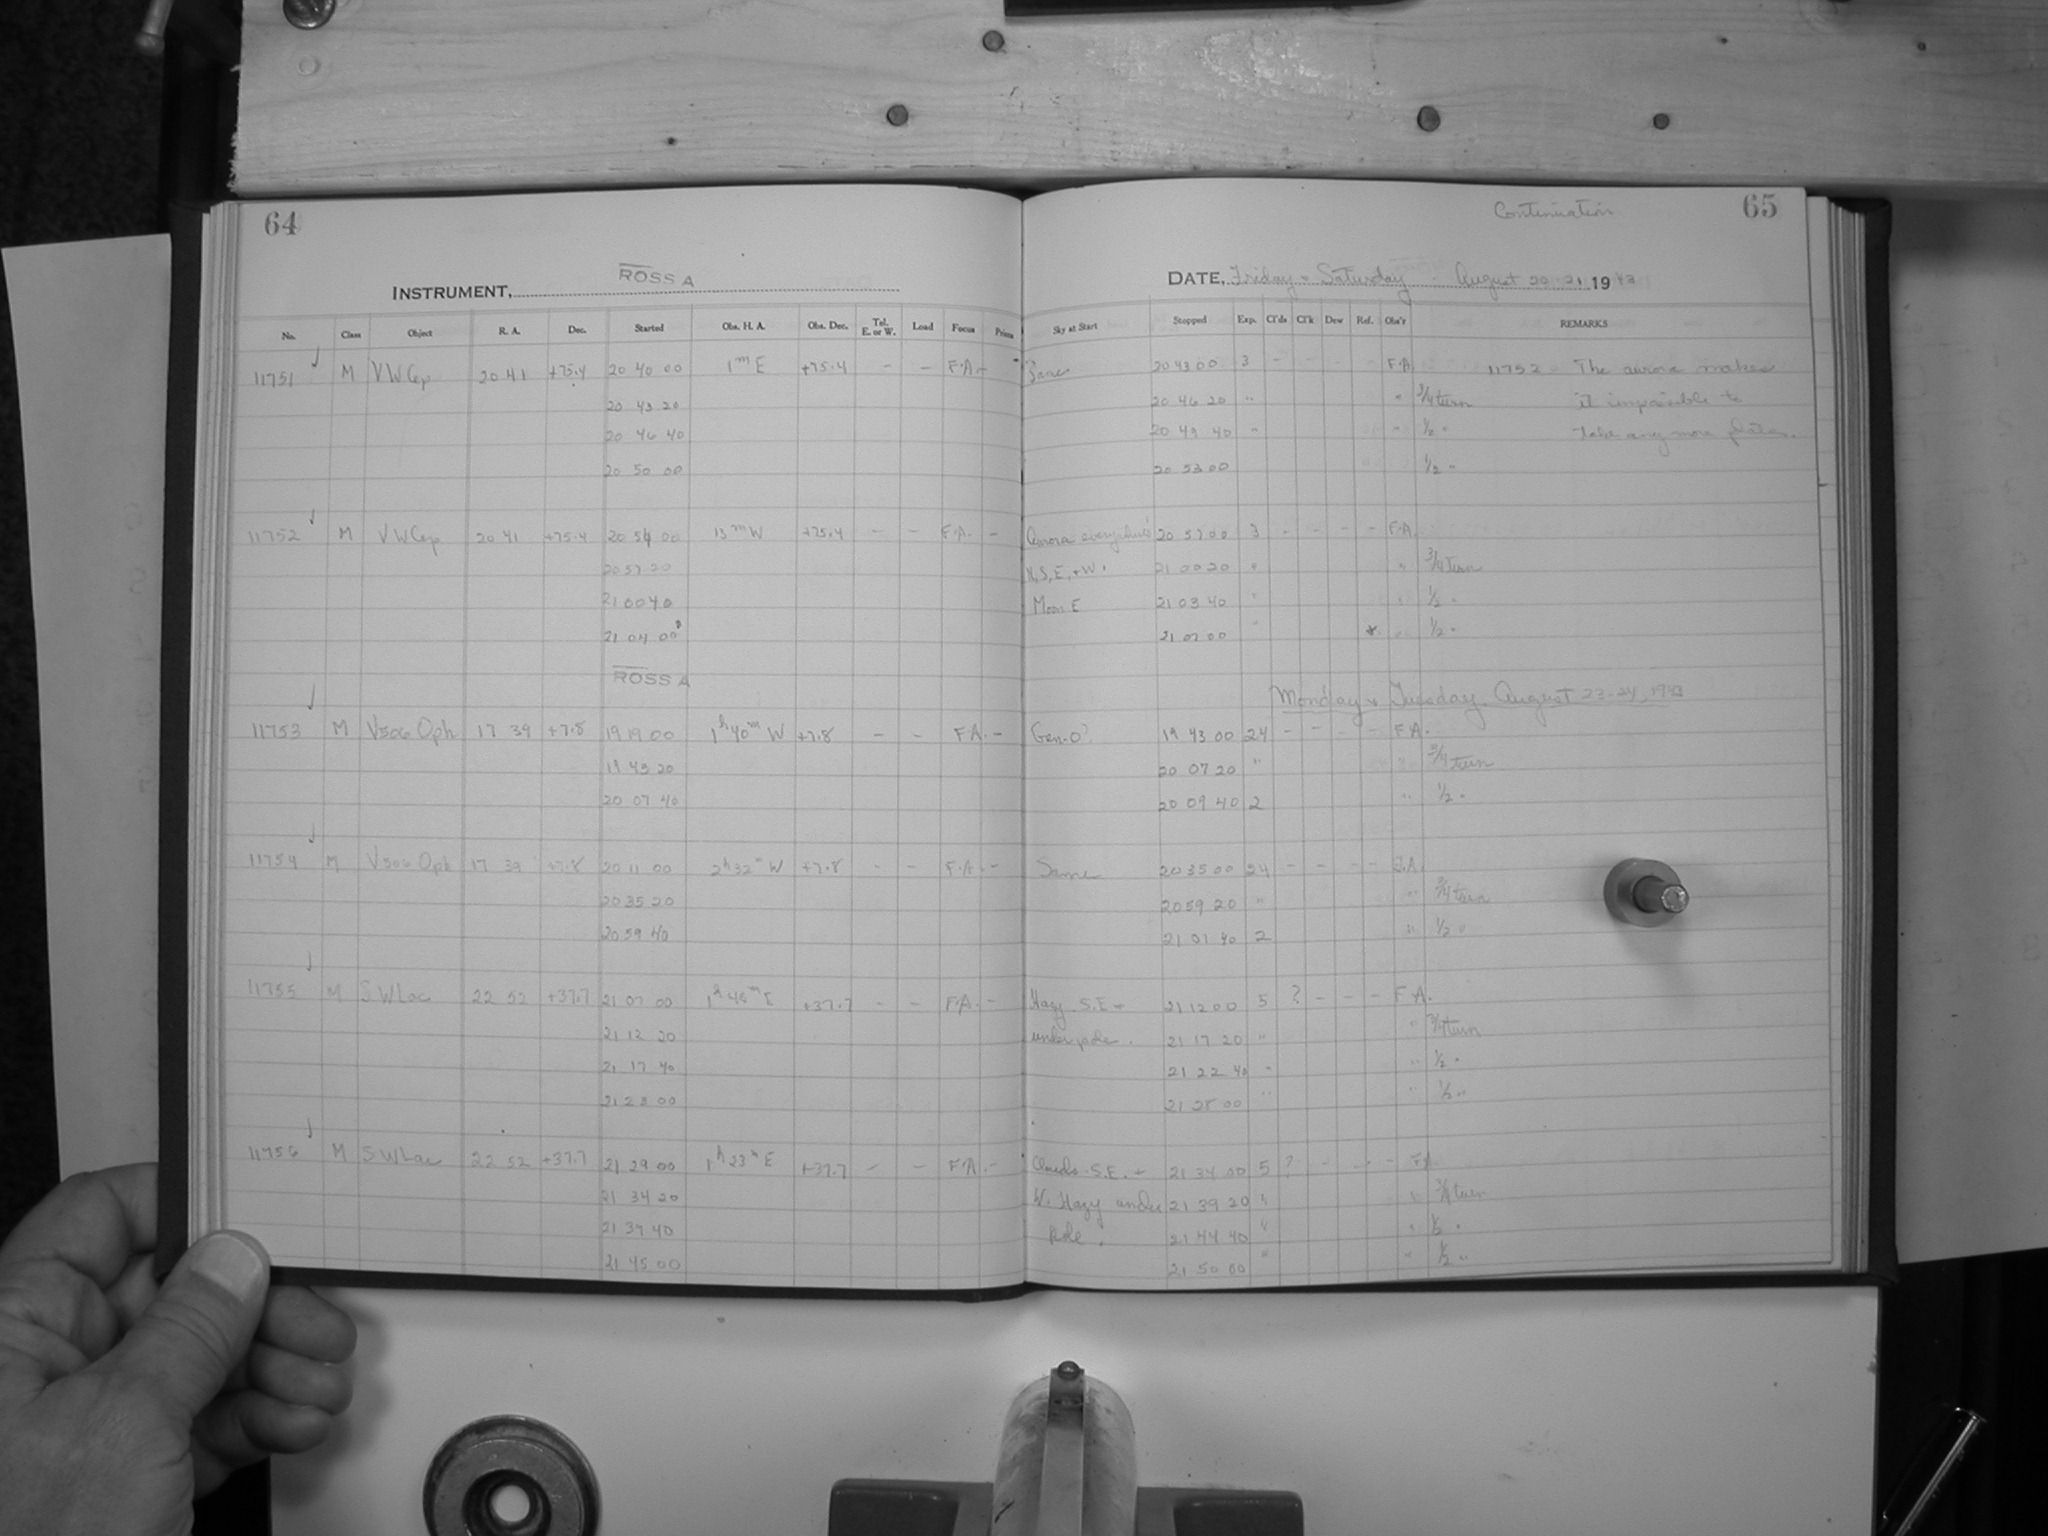 64
Continuation 65
INSTRUMENT, ROSS A
DATE, Friday & Saturday August 20-21 1943
No. Class Object R. A. Dec. Started Obs. H. A. Obs. Dec. Tel. E. or W. Load Focus Prism Sky at Start Stopped Exp. Cl'ds Cl'k Dew Ref. Obs'r REMARKS
11751 M VW Cep 20 41 +75.4 20 40 00 1m E +75.4 - - F.A. - Same 20 43 00 3 - - - - F.A. 11752 The aurora makes
20 43 20 20 46 20 " " 3/4 turn it impossible to
20 46 40 20 49 40 " " 1/2 " take any more plates.
20 50 00 20 53 00 1/2 "
11752 M VW Cep 20 41 +75.4 20 54 00 13m W +75.4 - - F.A. - Aurora everywhere 20 57 00 3 - - - - F.A.
20 57 20 N, S, E, + W. 21 00 20 " " 3/4 turn
21 00 40 Moon E 21 03 40 " " 1/2 "
21 04 00 21 07 00 " " 1/2 "
ROSS A
Monday & Tuesday, August 23-24, 1943
11753 M V506 Oph 17 39 +7.8 19 19 00 1h 40m W +7.8 - - F.A. - 19 43 00 24 - - - - F.A.
19 43 20 20 07 20 " " 3/4 turn
20 07 40 20 09 40 2 " 1/2 "
11754 M V506 Oph 17 39 +7.8 20 11 00 2h 32m W +7.8 - - F.A. - Same 20 35 00 24 - - - - F.A.
20 35 20 20 59 20 " " 3/4 turn
20 59 40 21 01 40 2 " 1/2 "
11755 M SW Lac 22 52 +37.7 21 07 00 1h 45m E +37.7 - - F.A. - Hazy S.E. + 21 12 00 5 ? - - - F.A.
21 12 20 under pole. 21 17 20 " " 3/4 turn
21 17 40 21 22 40 " " 1/2 "
21 23 00 21 28 00 " " 1/2 "
11756 M SW Lac 22 52 +37.7 21 29 00 1h 23m E +37.7 - - F.A. - Clouds S.E. + 21 34 00 5 ? - - - F.A.
21 34 20 W. Hazy under 21 39 20 " " 3/4 turn
21 39 40 pole. 21 44 40 " " 1/2 "
21 45 00 21 50 00 " " 1/2 "